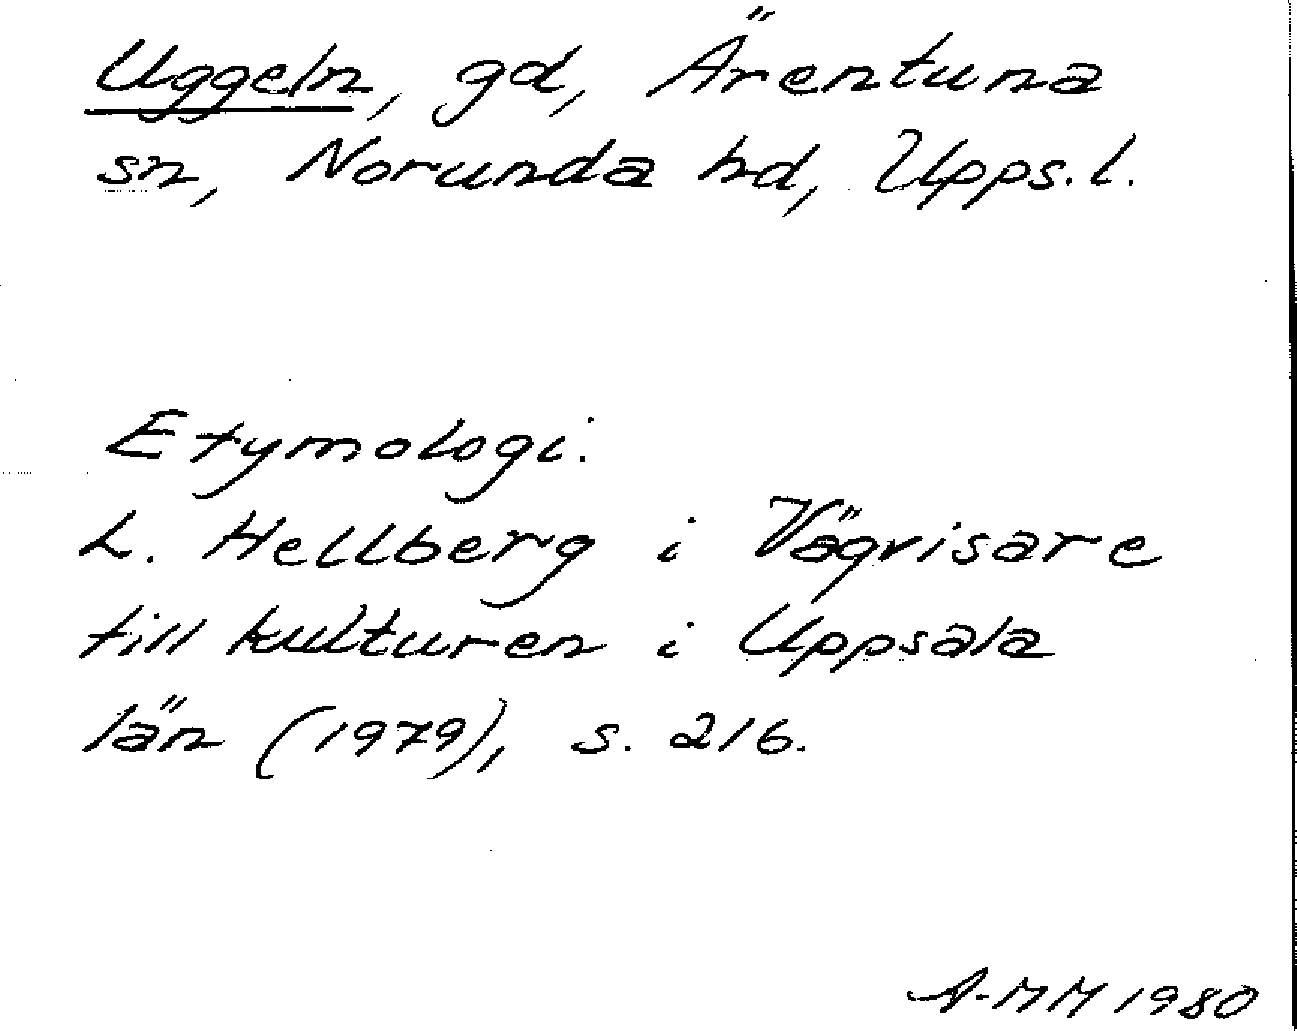 Uggeln, gd, Ärentuna
sn, Norunda hd, Upps. l.
Etymologi.
L. Hellberg i Vägvisare
till kulturen i Uppsala
län (1979), s. 216.
A-MM 1980